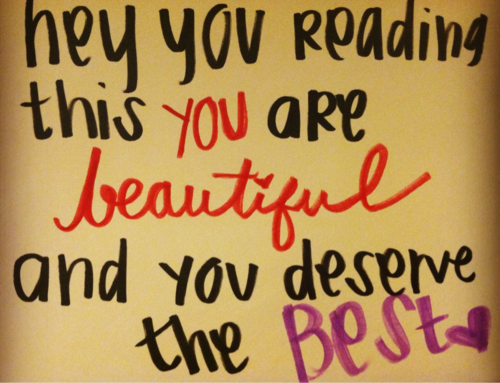 hey you Reading
this you are
beautiful
and you deserve
the Best